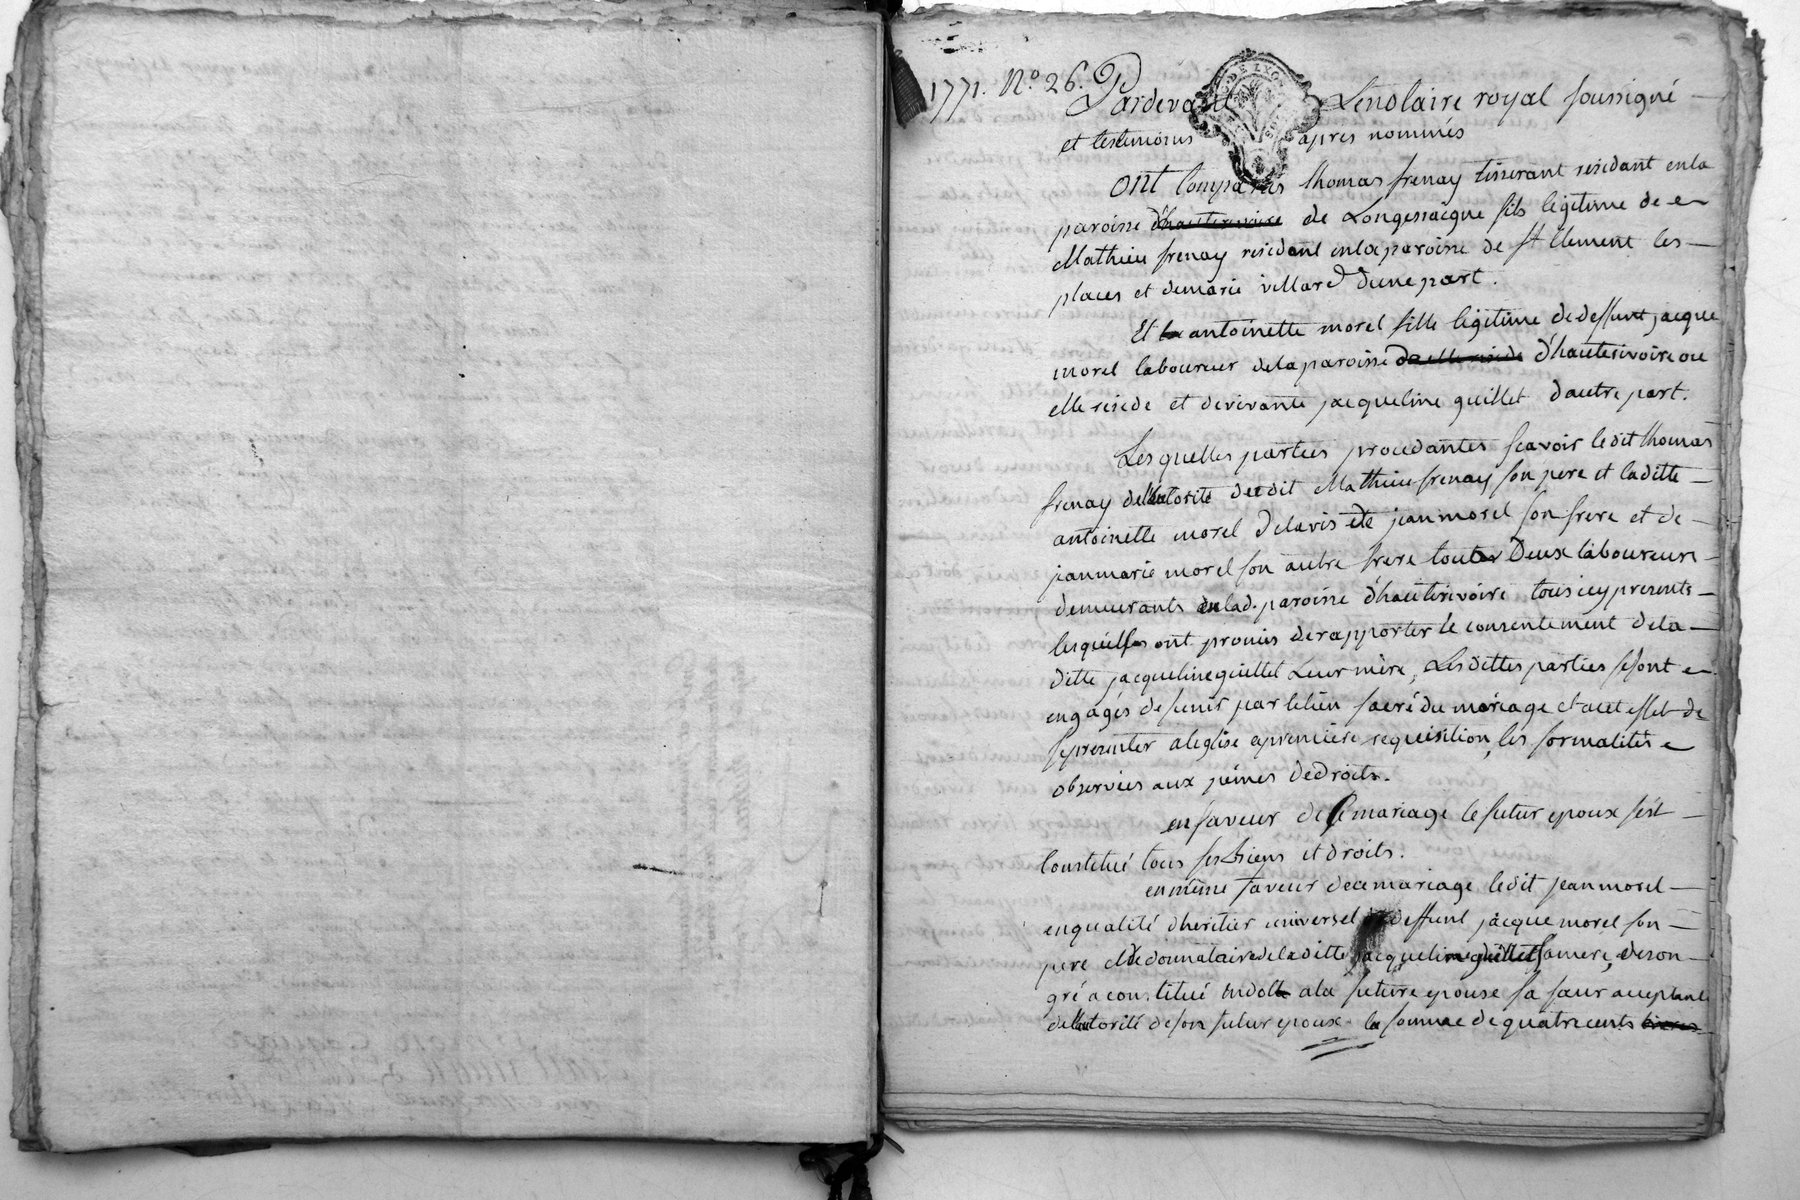 1771. N.o 26. Pardevant Le notaire royal soussigné
et temoins apres nommés
ont Comparus thomas frenay tisserant residant en la
paroisse d'hauterivoire de Longessaigne fils legitime de
Mathieu frenay residant en la paroisse de st Clement les
places et de marie villard d'une part.
Et la antoinette morel fille legitime de deffunt jacque
morel laboureur de la paroisse d'hauterivoire ou
elle reside et de vivante jacqueline guillet d'autre part.
Les quelles parties procedantes scavoir le dit thomas
frenay de l'autorité du dit Mathieu frenay son pere et la ditte
antoinette morel de l'avis de jean morel son frere et de
jean marie morel son autre frere tout deux laboureurs
demeurants en lad. paroisse d'hauterivoire tous icy presents
lesquelles ont promis de rapporter le consentement de la
ditte jacqueline guillet Leur mère, Les dittes parties se sont
engagés de s'unir par le lien sacré du mariage et a cet effet de
se presenter a l'eglise a premiere requisition, les formalités
observées aux peines de droits.
en faveur de Ce mariage le futur epoux s'est
Constitué tous ses biens et droits.
en même faveur de ce mariage le dit jean morel
en qualité d'heritier universel deffunt jacque morel son
pere et de donnataire de la ditte jacqueline guillet sa mere, de son
gré a constitué en dot a la future epouse sa sœur acceptante
de l'autorité de son futur epoux la somme de quatre cents livres